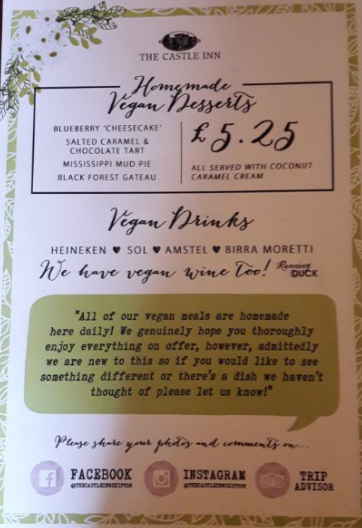 THE CASTLE INN
Homemade
Vegan Desserts
BLUEBERRY 'CHEESECAKE'
SALTED CARAMEL &
CHOCOLATE TART
MISSISSIPPI MUD PIE
BLACK FOREST GATEAU
£5.25
ALL SERVED WITH COCONUT
CARAMEL CREAM
Vegan Drinks
HEINEKEN ♥ SOL ♥ AMSTEL ♥ BIRRA MORETTI
We have vegan wine too! Running
DUCK
"All of our vegan meals are homemade
here daily! We genuinely hope you thoroughly
enjoy everything on offer, however, admittedly
we are new to this so if you would like to see
something different or there's a dish we haven't
thought of please let us know!"
Please share your photos and comments on...
FACEBOOK
@THECASTLEINNSKIPTON
INSTAGRAM
@THECASTLEINNSKIPTON
TRIP
ADVISOR